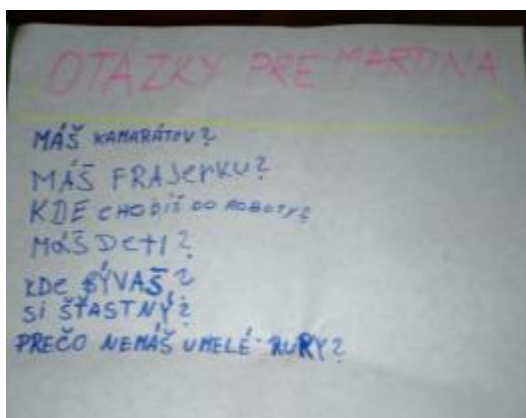 OTÁZKY PRE MARTINA
MÁŠ KAMARÁTOV?
MÁŠ FRAJERKU?
KDE CHODÍŠ DO ROBOTY?
MÁŠ DETI?
KDE BÝVAŠ?
SI ŠŤASTNÝ?
PREČO NEMÁŠ UMELÉ RURY?